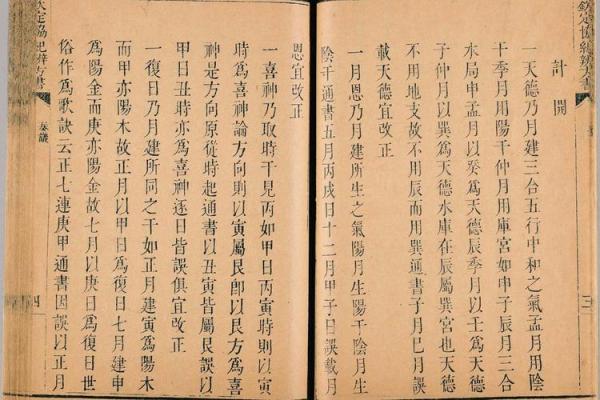 欽定協紀辨方書
三
計開
一天德乃月建三合五行中和之氣孟月用陰
干季月用陽干仲月用庫宮如申子辰月三合
水局申孟月以癸爲天德辰季月以壬爲天德
子仲月以巽爲天德水庫在辰屬巽宮也天德
不用地支故不用辰而用巽通書子巳月誤
載天德宜改正
一月恩乃月建所生之氣陽月生陽干陰月生
陰干通書五月丙戌日十二月甲子日誤載月
恩宜改正
一喜神乃取時干見丙如甲日丙寅時則以寅
時爲喜神論方向則以寅屬艮即以艮方爲喜
神是方向原從時起通書以丑寅皆屬艮誤以
甲日丑時亦爲喜神逐日皆誤俱宜改正
一復日乃月建所同之干如正月建寅爲陽木
而甲亦陽木故正月以甲日爲復日七月建申
爲陽金而庚亦陽金故七月以庚日爲復日世
俗作爲歌訣云正七連庚甲通書因誤以正月
欽定協紀辨方書
奏議
四